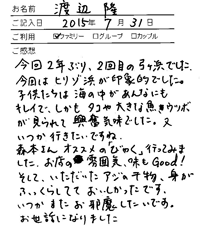 お名前 渡辺 隆
ご記入日 2015年 7月 31日
ご利用 ☑ファミリー □グループ □カップル
ご感想
今回2年ぶり、2回目の3ヶ浜でした。
今回はヒリゾ浜が印象的でした。
子供たちは海の中があんなにも
キレイで、しかもタコや大きな魚もウツボ
が見られて興奮気味でした。又
いつか行きたいですね。
森本さんオススメの「びわく」行ってみま
した。お店の雰囲気、味もGood!
そして、いただいたアジの干物、身が
ふっくらしてて おいしかったです。
いつかまたお邪魔したいです。
お世話になりました